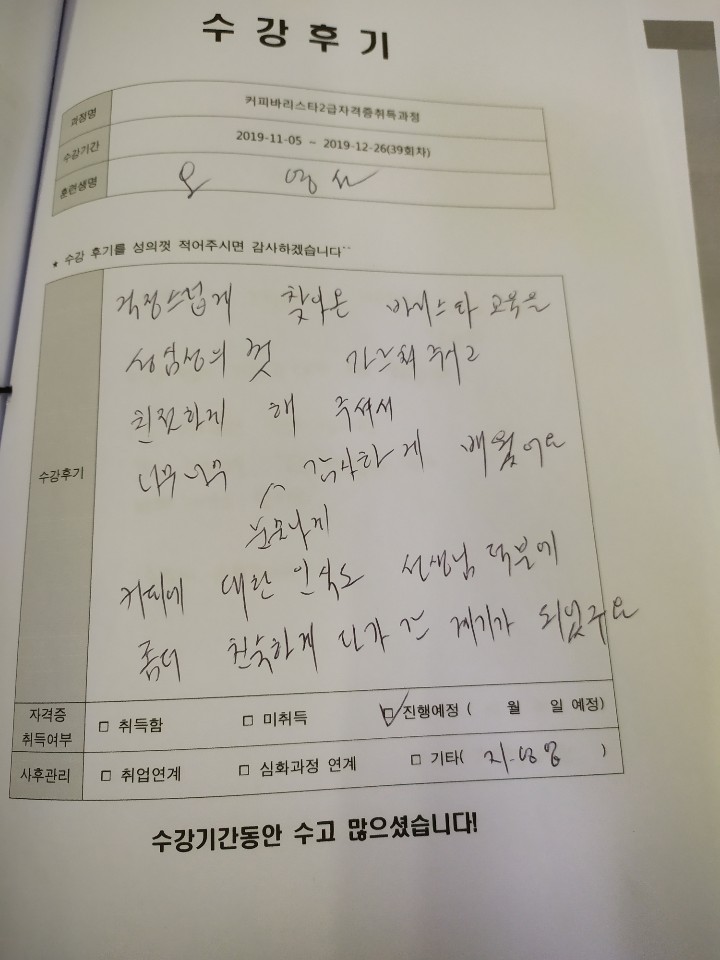 수강후기
과정명 커피바리스타2급자격증취득과정
수강기간 2019-11-05 ~ 2019-12-26(39회차)
훈련생명
* 수강 후기를 성의껏 적어주시면 감사하겠습니다^^
수강후기
걱정스럽게 찾아온 바리스타 교육을
성심성의 껏 가르쳐 주시고
친절하게 해 주셔서
너무너무 감사하게 배웠어요
커피에 대한 인식도 선생님 덕분에
좀더 친숙하게 다가 간 계기가 되었구요
자격증 취득여부 □ 취득함 □ 미취득 ☑ 진행예정 ( 월 일 예정)
사후관리 □ 취업연계 □ 심화과정 연계 □ 기타( )
수강기간동안 수고 많으셨습니다!